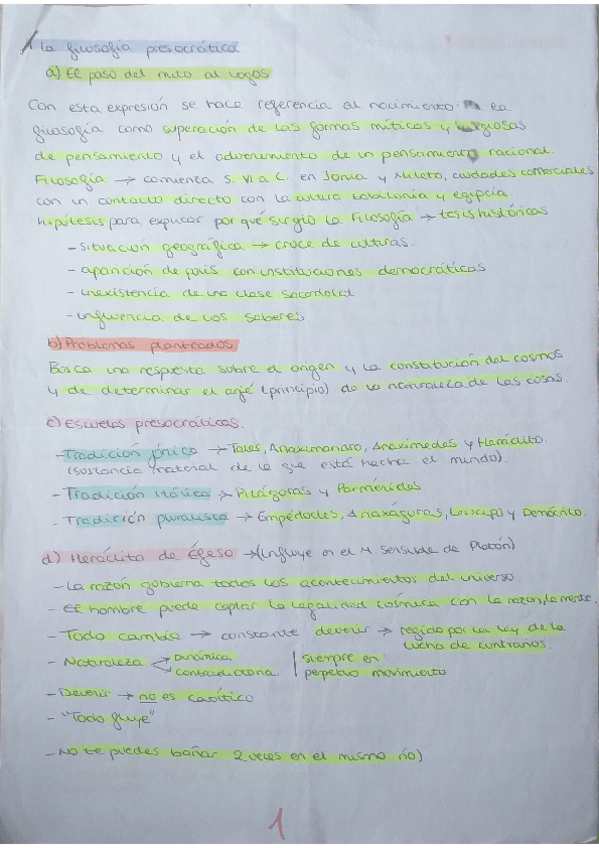 1 La filosofía presocrática
a) El paso del mito al logos
Con esta expresión se hace referencia al nacimiento en la
filosofía como superación de las formas míticas y religiosas
de pensamiento y el advenimiento de un pensamiento racional.
Filosofía → comienza S. VI a.C. en Jonia y Mileto, ciudades comerciales
con un contacto directo con la cultura babilonia y egipcia.
hipótesis para explicar por qué surgió la Filosofía → tesis históricas
- Situación geográfica → cruce de culturas.
- aparición de polis con instituciones democráticas
- inexistencia de una clase sacerdotal
- influencia de los saberes
b) Problemas planteados
Busca una respuesta sobre el origen y la constitución del cosmos
y de determinar el arjé (principio) de la naturaleza de las cosas.
c) Escuelas presocráticas.
- Tradición jónica → Tales, Anaximandro, Anaxímedes y Heráclito.
(sustancia material de la que está hecha el mundo).
- Tradición itálica → Pitágoras y Parménides
- Tradición pluralista → Empédocles, Anaxágoras, Leucipo y Demócrito.
d) Heráclito de Éfeso → (Influye en el M. Sensible de Platón)
- La razón gobierna todos los acontecimientos del universo.
- El hombre puede captar la legalidad cósmica con la razón, la mente.
- Todo cambia → constante devenir → regido por la ley de la
lucha de contrarios.
- Naturaleza < Dinámica | siempre en
contradictoria | perpetuo movimiento
- Devenir → no es caótico
- "Todo fluye"
- No te puedes bañar 2 veces en el mismo río)
1